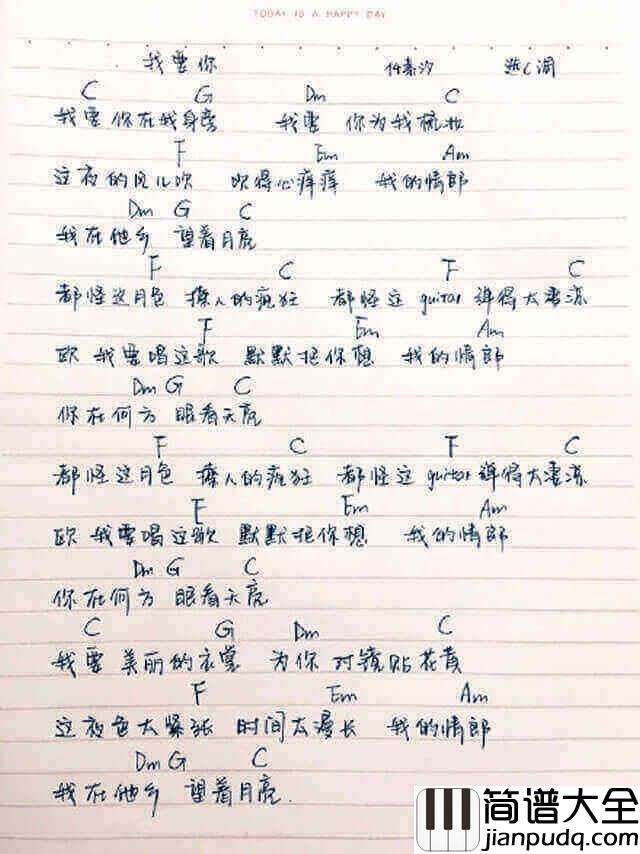 TODAY IS A HAPPY DAY
我要你 任素汐 选C调
C G Dm C
我要 你在我身旁 我要 你为我梳妆
F Em Am
这夜的风儿吹 吹得心痒痒 我的情郎
Dm G C
我在他乡 望着月亮
F C F C
都怪这月色 撩人的疯狂 都怪这 guitar 弹得太凄凉
F Em Am
欧 我要唱这歌 默默把你想 我的情郎
Dm G C
你在何方 眼看天亮
F C F C
都怪这月色 撩人的疯狂 都怪这 guitar 弹得太凄凉
F Em Am
欧 我要唱这歌 默默把你想 我的情郎
Dm G C
你在何方 眼看天亮
C G Dm C
我要 美丽的衣裳 为你 对镜贴花黄
F Em Am
这夜色太紧张 时间太漫长 我的情郎
Dm G C
我在他乡 望着月亮.
简谱大全
jianpudq.com